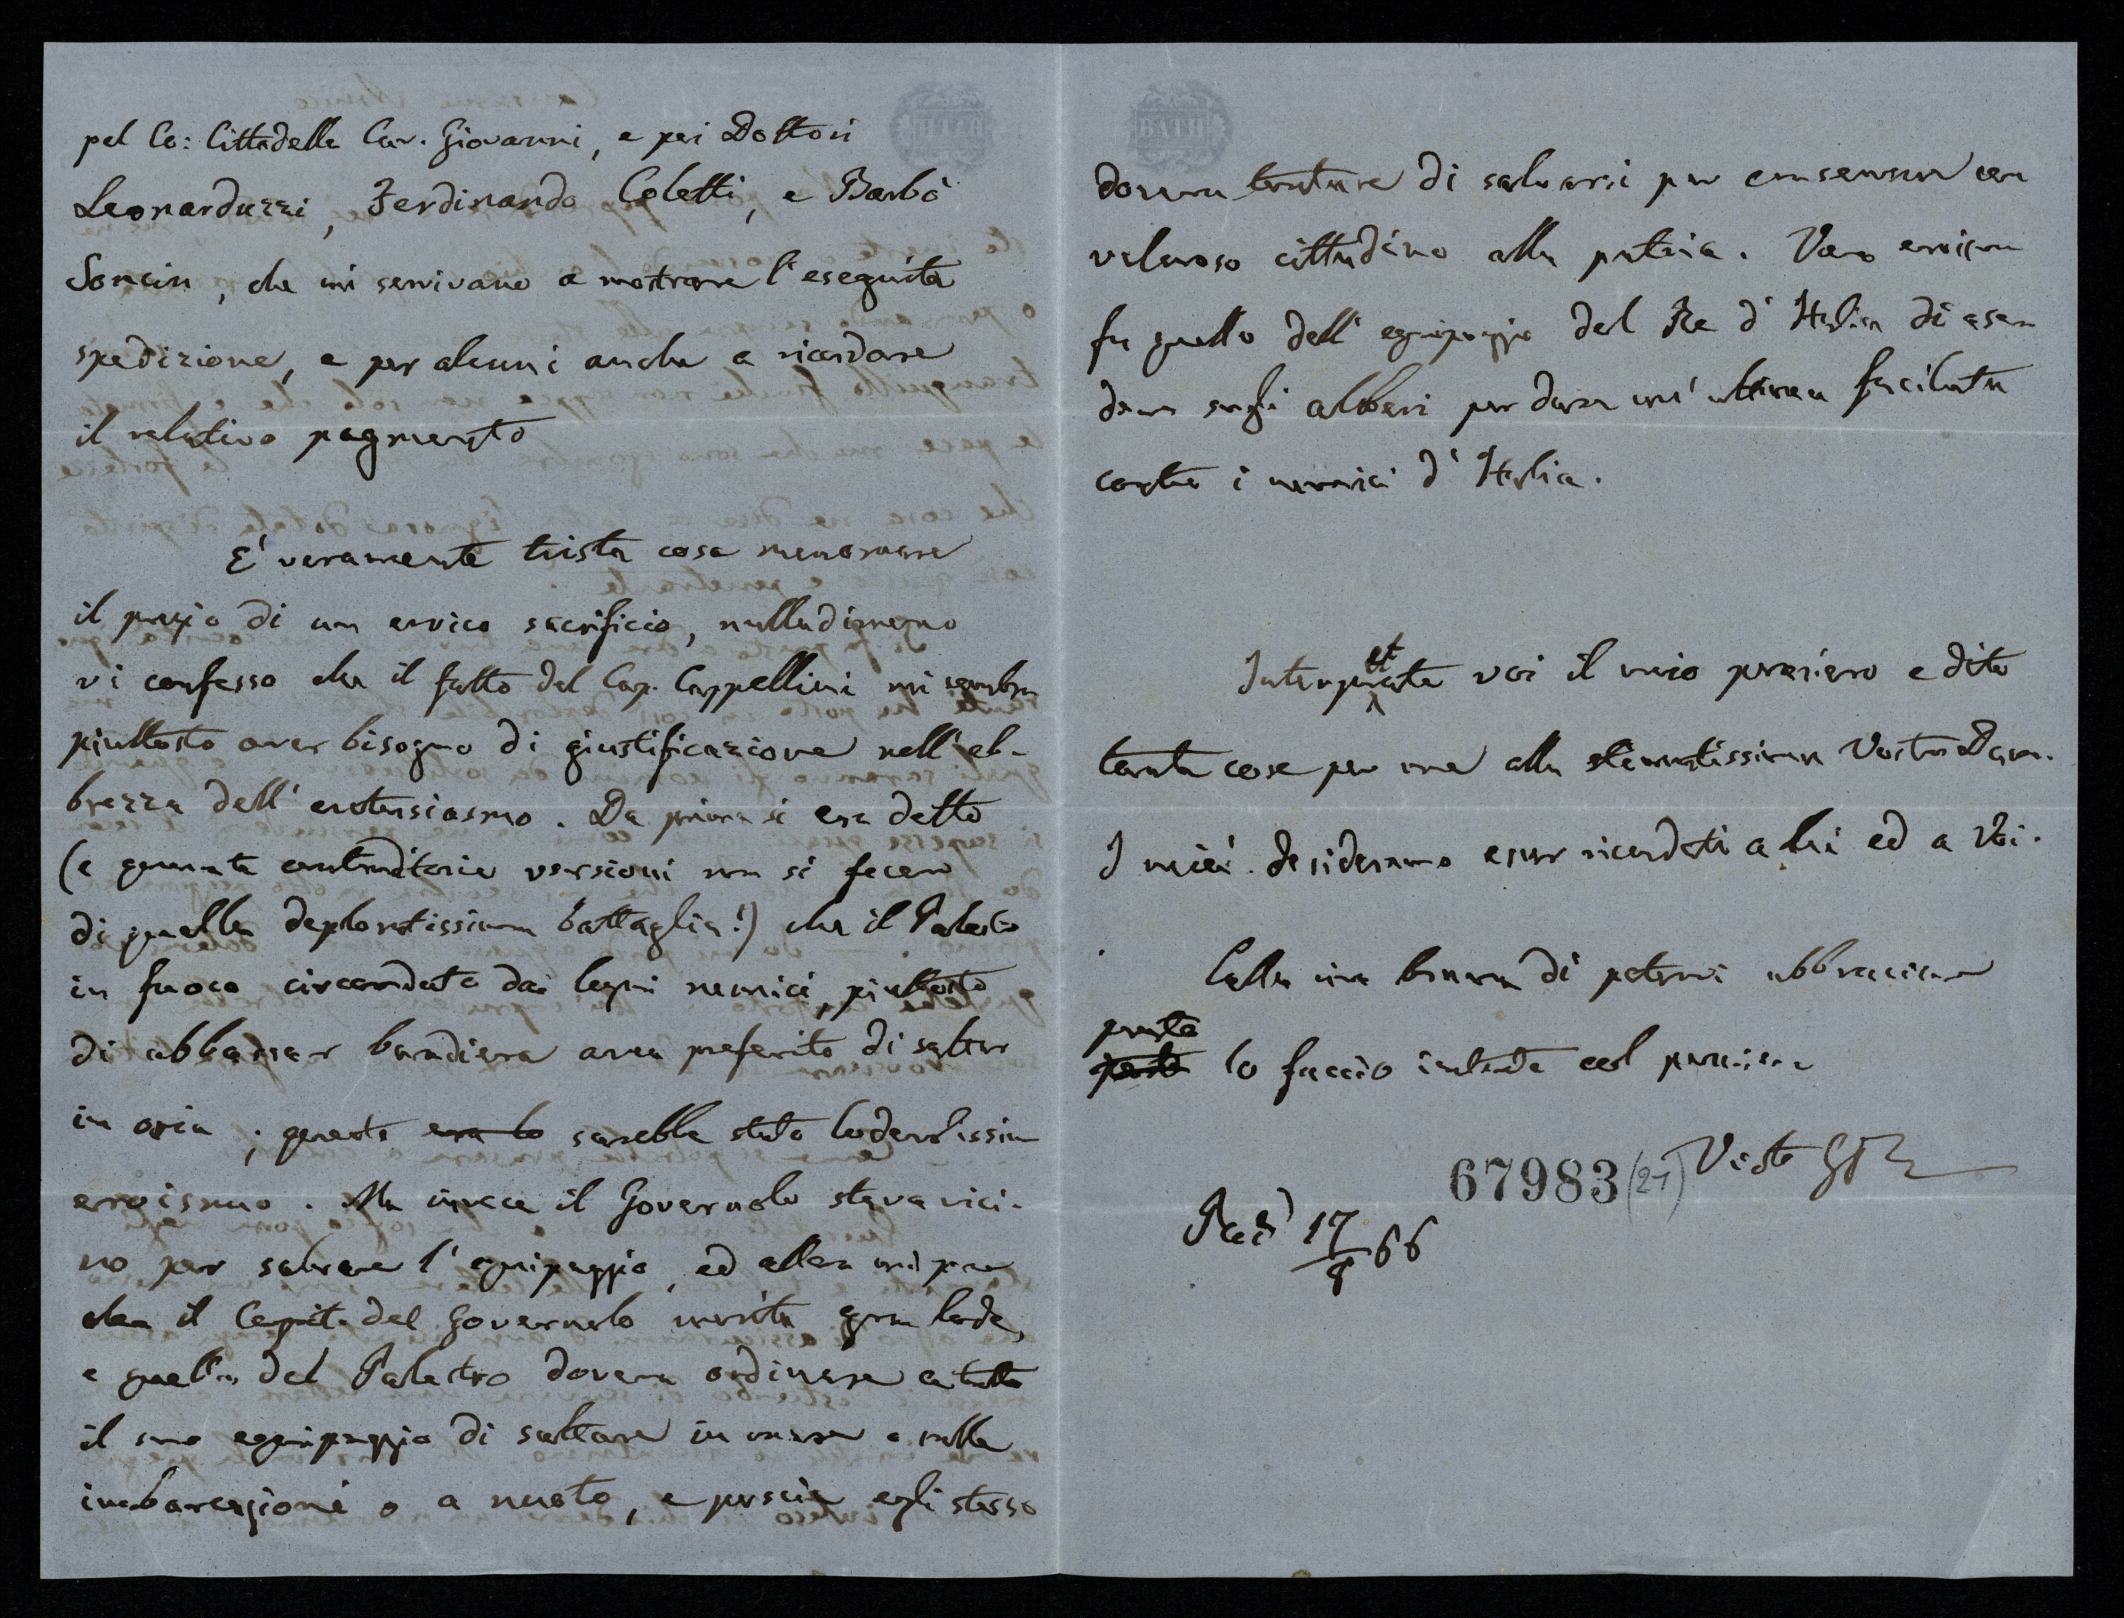 pel Co: Cittadella Cav. Giovanni, e pei Dottori
Leonarduzzi, Ferdinando Coletti, e Barbò
Soncin, che mi servivano a mostrare l'eseguita
spedizione, e per alcuni anche a ricordare
il relativo pagmento
E' veramente trista cosa menomare
il pregio di un eroico sacrificio, nulladimeno
vi confesso che il fatto del Cap. Cappellini mi sembra
piuttosto aver bisogno di giustificazione nell'eb-
brezza dell'entusiasmo. Da prima si era detto
(e quante contraditorie versioni non si fecero
di quella deploratissima battaglia!) che il Palestro
in fuoco circondato dai legni nemici, piuttosto
di abbassar bandiera avea preferito di saltar
in aria; questo sarebbe stato lodevolissimo
eroismo. Ma invece il Governolo stava vici-
no per salvare l'equipaggio, ed allora mi pare
che il Capit. del Governolo merita gran lode,
e quello del Palestro doveva ordinare a tutto
il suo equipaggio di saltare in mare o nelle
imbarcazioni o a nuoto, e poscia egli stesso
doveva tentare di salvarsi per conservare un
valoroso cittadino alla patria. Vero eroismo
fu quello dell'equipaggio del Re d'Italia di ascen
dere sugli alberi per dare un'ultima fucilata
contro i nemici d'Italia.
Interpretate voi il mio pensiero e dite
tante cose per me alla stimatissima Vostra Dama.
I miei desiderano esser ricordati a lei ed a Voi.
Colla viva brama di potervi abbracciare
presto
lo faccio intanto col pensiero
67983 (21) Vostro
17
8 66
BATH